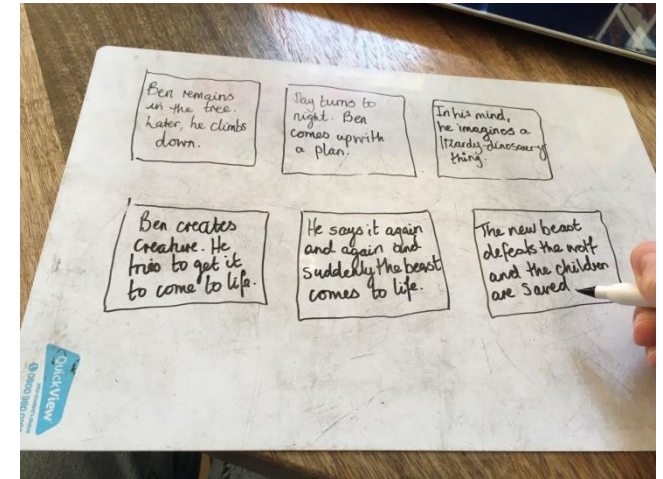 Ben remains
in the tree.
Later, he climbs
down.
Day turns to
night. Ben
comes up with
a plan.
In his mind,
he imagines a
lizardy-dinosaury
thing.
Ben creates
creature. He
tries to get it
to come to life.
He says it again
and again and
suddenly the beast
comes to life.
The new beast
defeats the wolf
and the children
are saved
QuickView